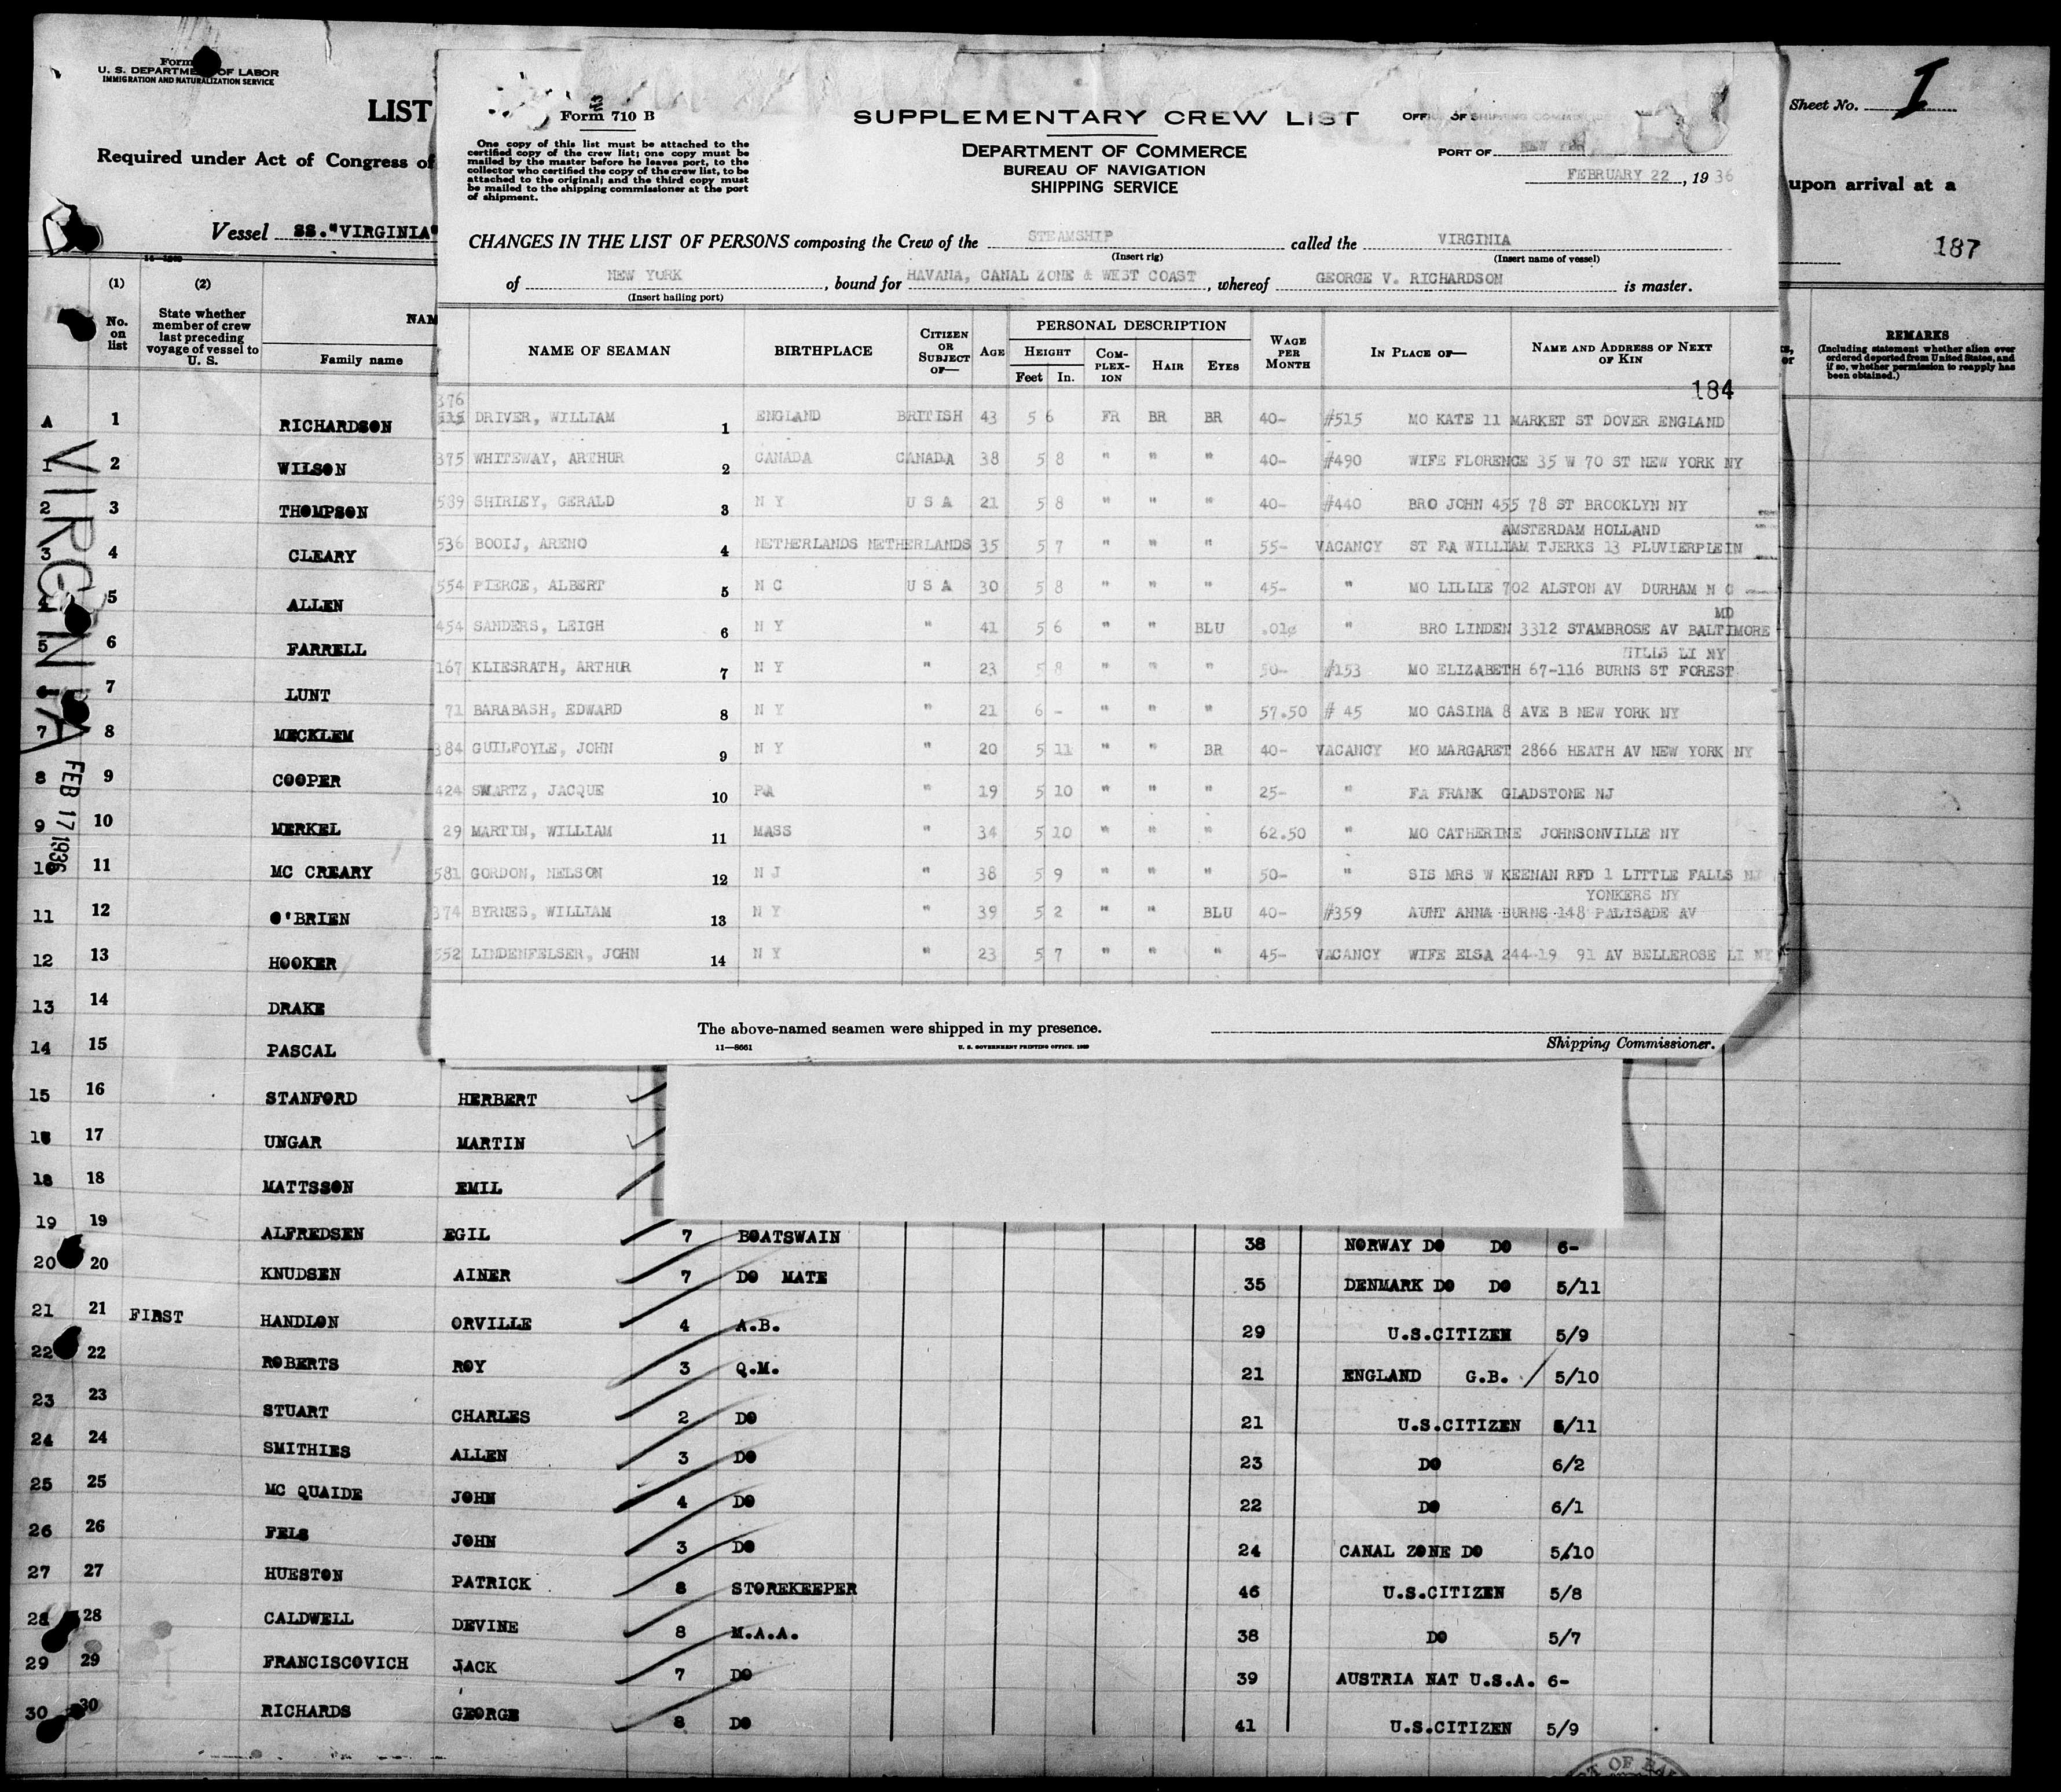 Form
U. S. DEPARTMENT OF LABOR
IMMIGRATION AND NATURALIZATION SERVICE
LIST
Required under Act of Congress of
Vessel SS."VIRGINIA"
Sheet No. I
upon arrival at a
187
(1) (2)
No. on list
State whether member of crew last preceding voyage of vessel to U. S.
NAM
Family name
REMARKS
(Including statement whether alien ever ordered deported from United States, and if so, whether permission to reapply has been obtained.)
Form 710 B
One copy of this list must be attached to the
certified copy of the crew list; one copy must be
mailed by the master before he leaves port, to the
collector who certified the copy of the crew list, to be
attached to the original; and the third copy must
be mailed to the shipping commissioner at the port
of shipment.
SUPPLEMENTARY CREW LIST
DEPARTMENT OF COMMERCE
BUREAU OF NAVIGATION
SHIPPING SERVICE
OFFICE OF SHIPPING COMMISSIONER
PORT OF NEW YORK
FEBRUARY 22, 1936
CHANGES IN THE LIST OF PERSONS composing the Crew of the STEAMSHIP called the VIRGINIA
(Insert rig) (Insert name of vessel)
of NEW YORK, bound for HAVANA, CANAL ZONE & WEST COAST, whereof GEORGE V. RICHARDSON is master.
(Insert hailing port)
NAME OF SEAMAN BIRTHPLACE CITIZEN OR SUBJECT OF— AGE PERSONAL DESCRIPTION HEIGHT Feet In. COMPLEXION HAIR EYES WAGE PER MONTH IN PLACE OF— NAME AND ADDRESS OF NEXT OF KIN
184
376
515 DRIVER, WILLIAM 1 ENGLAND BRITISH 43 5 6 FR BR BR 40- #515 MO KATE 11 MARKET ST DOVER ENGLAND
375 WHITEWAY, ARTHUR 2 CANADA CANADA 38 5 8 " " " 40- #490 WIFE FLORENCE 35 W 70 ST NEW YORK NY
589 SHIRLEY, GERALD 3 N Y U S A 21 5 8 " " " 40- #440 BRO JOHN 455 78 ST BROOKLYN NY
AMSTERDAM HOLLAND
536 BOOIJ, ARENO 4 NETHERLANDS NETHERLANDS 35 5 7 " " " 55- VACANCY ST FA WILLIAM TJERKS 13 PLUVIERPLEIN
554 PIERCE, ALBERT 5 N C U S A 30 5 8 " " " 45- " MO LILLIE 702 ALSTON AV DURHAM N C
MD
454 SANDERS, LEIGH 6 N Y " 41 5 6 " " BLU .01¢ " BRO LINDEN 3312 STAMBROSE AV BALTIMORE
HILLS LI NY
167 KLIESRATH, ARTHUR 7 N Y " 23 5 8 " " " 50- #153 MO ELIZABETH 67-116 BURNS ST FOREST
71 BARABASH, EDWARD 8 N Y " 21 6 - " " " 57.50 # 45 MO CASINA 8 AVE B NEW YORK NY
384 GUILFOYLE, JOHN 9 N Y " 20 5 11 " " BR 40- VACANCY MO MARGARET 2866 HEATH AV NEW YORK NY
424 SWARTZ, JACQUE 10 PA " 19 5 10 " " " 25- " FA FRANK GLADSTONE NJ
29 MARTIN, WILLIAM 11 MASS " 34 5 10 " " " 62.50 " MO CATHERINE JOHNSONVILLE NY
581 GORDON, NELSON 12 N J " 38 5 9 " " " 50- " SIS MRS W KEENAN RFD 1 LITTLE FALLS NJ
YONKERS NY
374 BYRNES, WILLIAM 13 N Y " 39 5 2 " " BLU 40- #359 AUNT ANNA BURNS 148 PALISADE AV
552 LINDENFELSER, JOHN 14 N Y " 23 5 7 " " " 45- VACANCY WIFE ELSA 244-19 91 AV BELLEROSE LI NY
The above-named seamen were shipped in my presence.
11—8661 U. S. GOVERNMENT PRINTING OFFICE. 1929 Shipping Commissioner.
VIRGINIA
FEB 17 1936
A 1 RICHARDSON
1 2 WILSON
2 3 THOMPSON
3 4 CLEARY
4 5 ALLEN
5 6 FARRELL
7 LUNT
7 8 MECKLEM
8 9 COOPER
9 10 MERKEL
10 11 MC CREARY
11 12 O'BRIEN
12 13 HOOKER
13 14 DRAKE
14 15 PASCAL
15 16 STANFORD HERBERT
16 17 UNGAR MARTIN
18 18 MATTSSON EMIL
19 19 ALFREDSEN EGIL 7 BOATSWAIN 38 NORWAY DO DO 6-
20 20 KNUDSEN AINER 7 DO MATE 35 DENMARK DO DO 5/11
21 21 FIRST HANDLON ORVILLE 4 A.B. 29 U.S.CITIZEN 5/9
22 22 ROBERTS ROY 3 Q.M. 21 ENGLAND G.B. 5/10
23 23 STUART CHARLES 2 DO 21 U.S.CITIZEN 5/11
24 24 SMITHIES ALLEN 3 DO 23 DO 6/2
25 25 MC QUAIDE JOHN 4 DO 22 DO 6/1
26 26 FELS JOHN 3 DO 24 CANAL ZONE DO 5/10
27 27 HUESTON PATRICK 8 STOREKEEPER 46 U.S.CITIZEN 5/8
28 28 CALDWELL DEVINE 8 M.A.A. 38 DO 5/7
29 29 FRANCISCOVICH JACK 7 DO 39 AUSTRIA NAT U.S.A. 6-
30 30 RICHARDS GEORGE 8 DO 41 U.S.CITIZEN 5/9